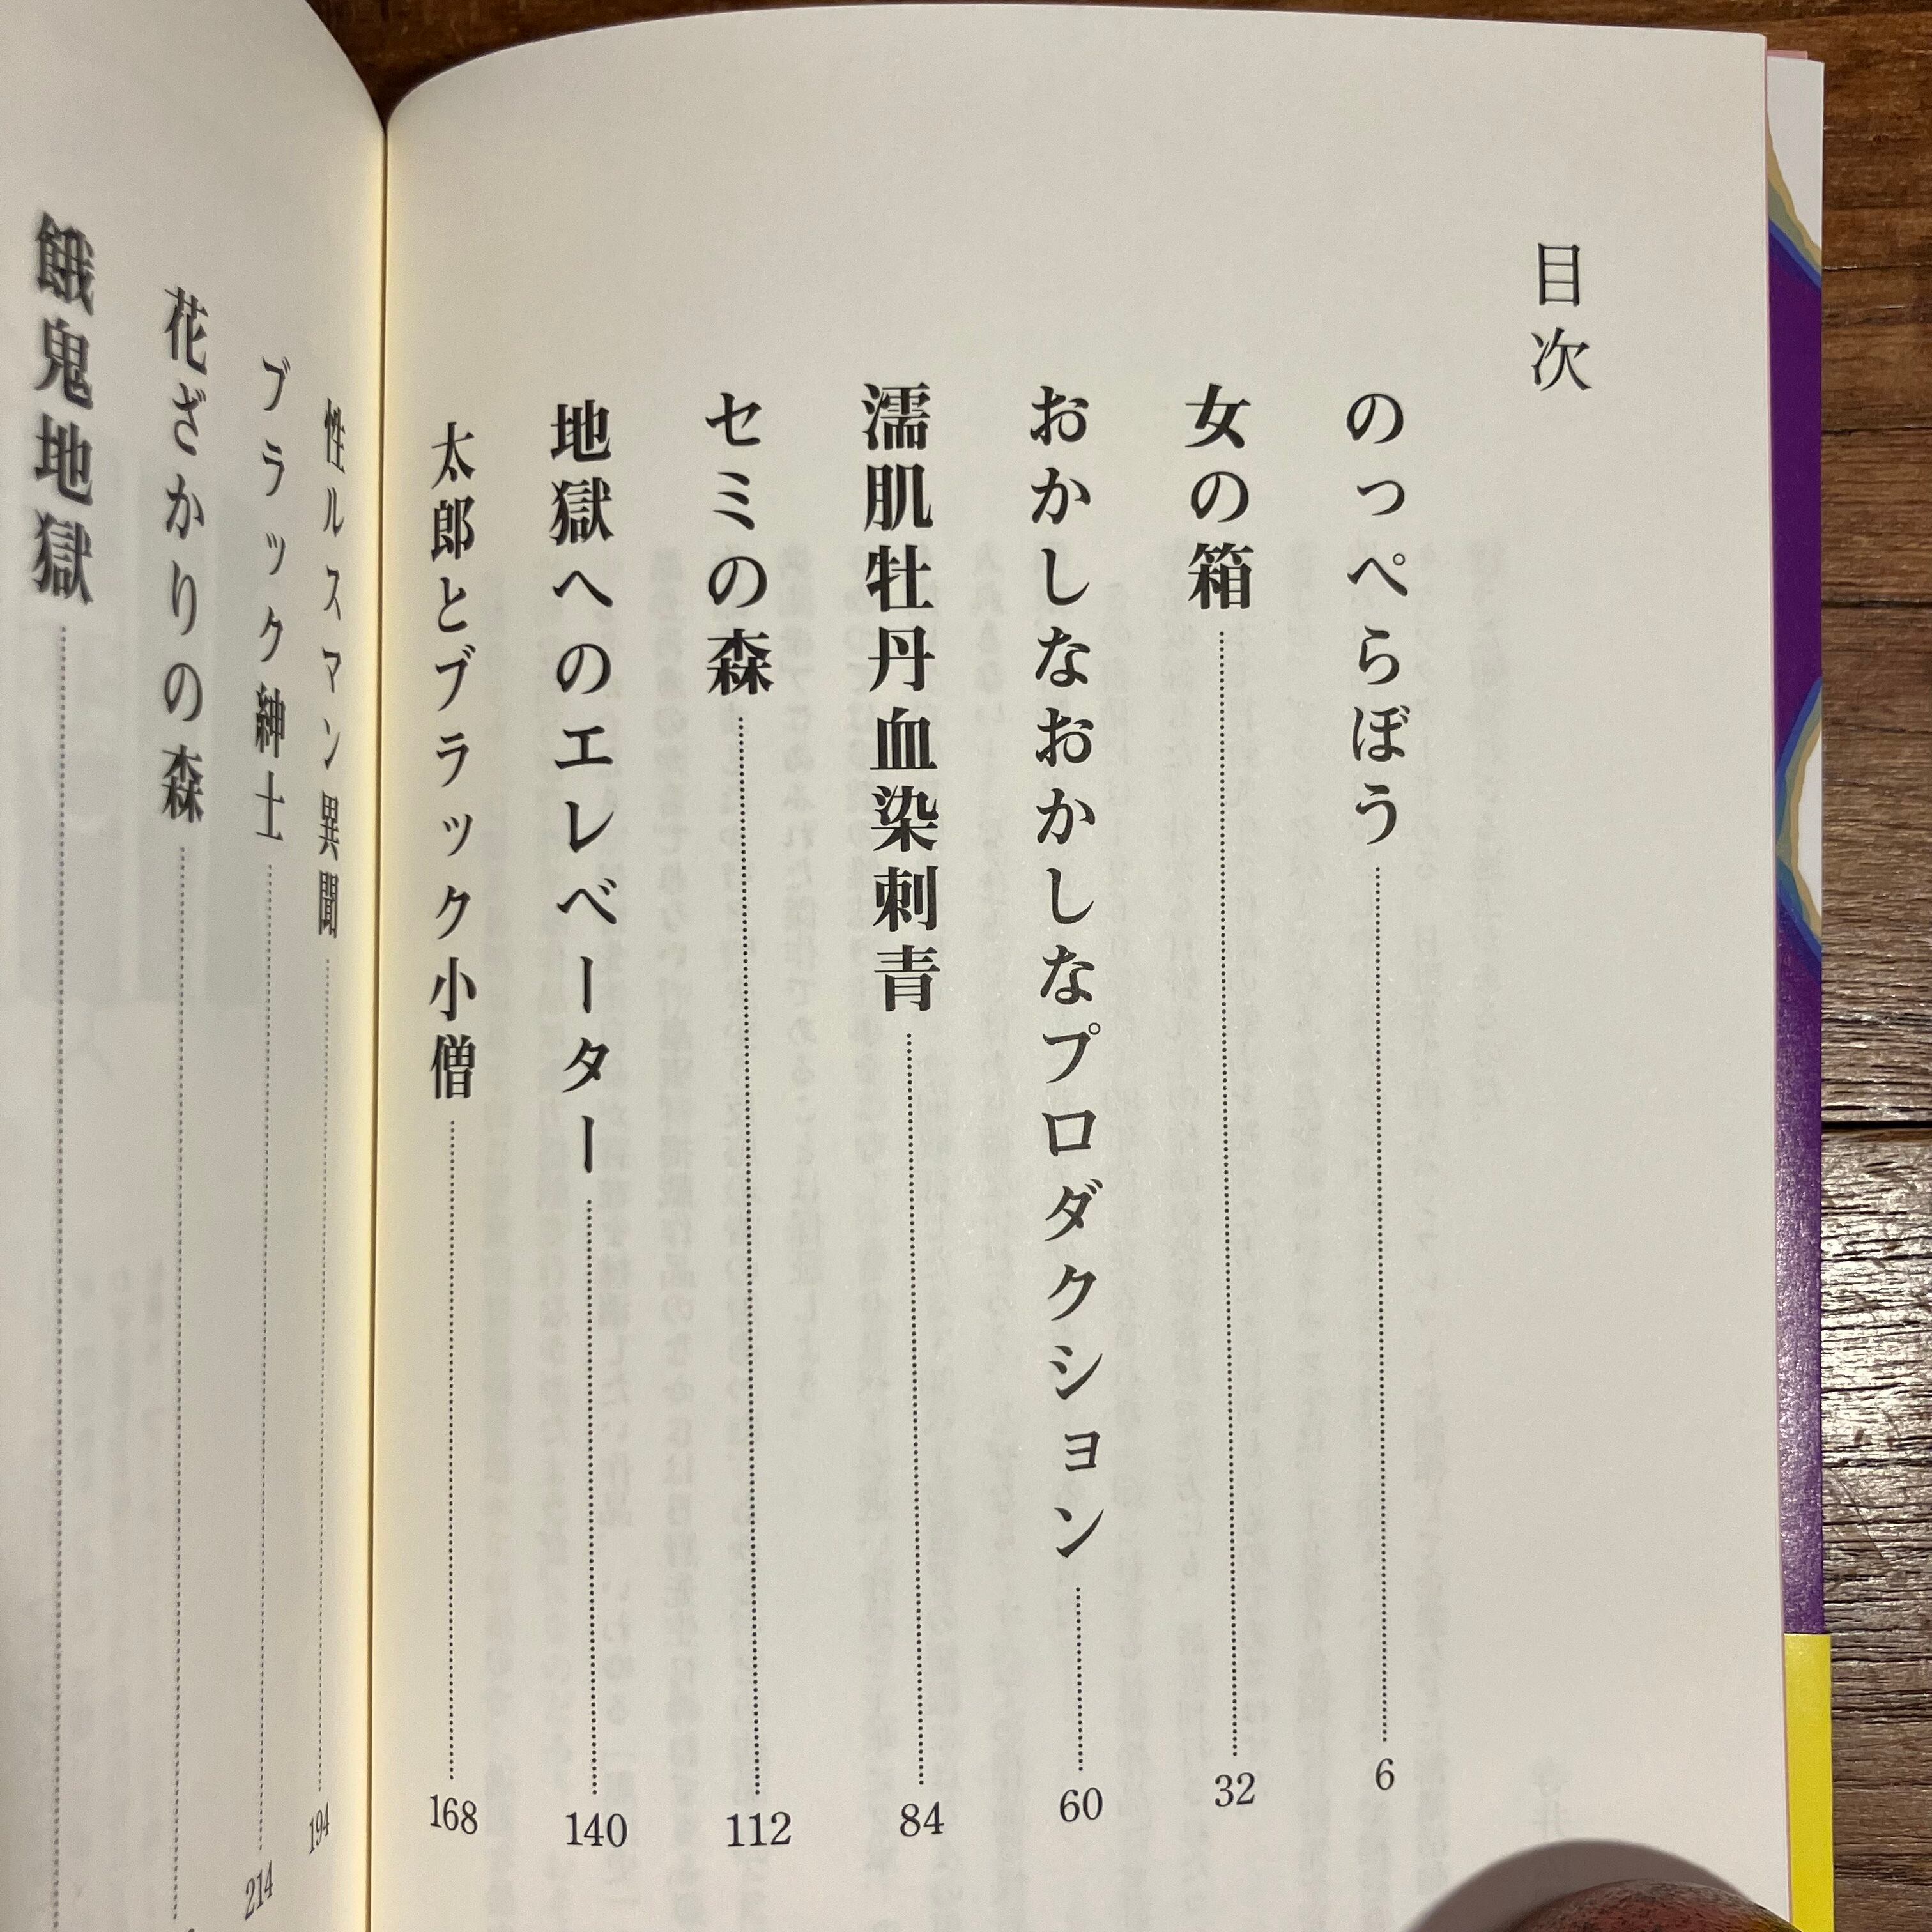 目次
のっぺらぼう 6
女の箱 32
おかしなおかしなプロダクション 60
濡肌牡丹血染刺青 84
セミの森 112
地獄へのエレベーター 140
太郎とブラック小僧 168
性ルスマン異聞 194
ブラック紳士 214
花ざかりの森
餓鬼地獄